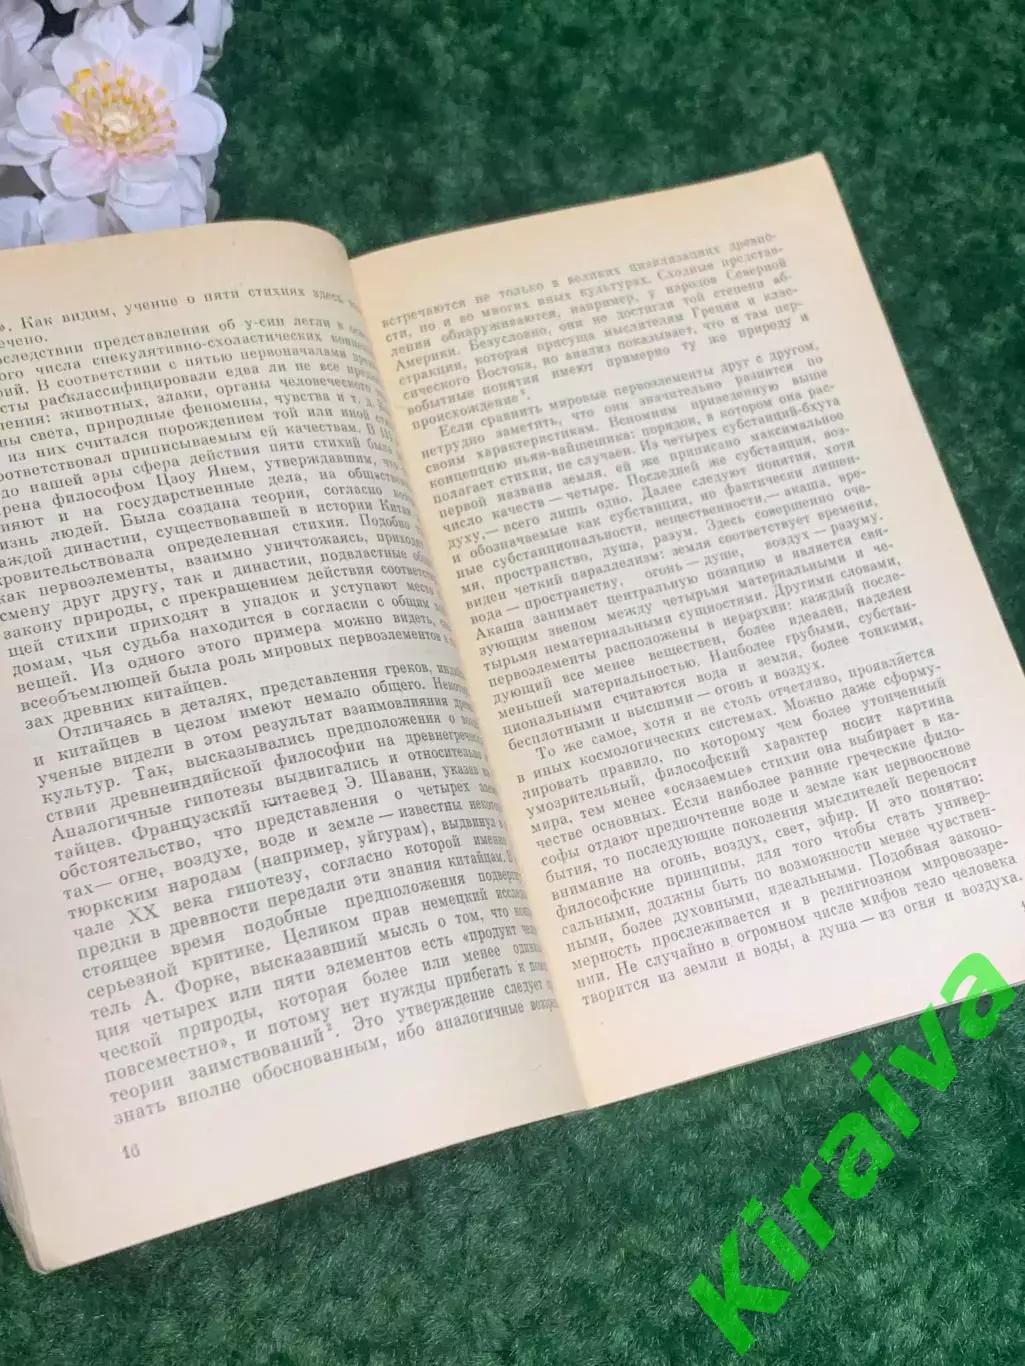 ». Как видим, учение о пяти стихиях здесь
ечено.
последствии представления об у-син легли в
ого числа спекулятивно-схоластических
рий. В соответствии с пятью первоначалами
сты расклассифицировали едва ли не все
ления: животных, злаки, органы человеческого
ны света, природные феномены, чувства и т. д.
из них считался порождением той или иной
оответствовал приписываемым ей качествам. В
до нашей эры сфера действия пяти стихий была
рена философом Цзоу Янем, утверждавшим, что
ияют и на государственные дела, на
изнь людей. Была создана теория, согласно
аждой династии, существовавшей в истории
кровительствовала определенная стихия. Подобно
как первоэлементы, взаимно уничтожаясь,
смену друг другу, так и династии, подвластные
закону природы, с прекращением действия
щей стихии приходят в упадок и уступают место
домам, чья судьба находится в согласии с общим
вещей. Из одного этого примера можно видеть,
всеобъемлющей была роль мировых первоэлементов в
зах древних китайцев.
Отличаясь в деталях, представления греков,
и китайцев в целом имеют немало общего.
ученые видели в этом результат взаимовлияния
культур. Так, высказывались предположения о
ствии древнеиндийской философии на
Аналогичные гипотезы выдвигались и относительно
тайцев. Французский китаевед Э. Шавани, указав
обстоятельство, что представления о четырех
тах — огне, воздухе, воде и земле — известны
тюркским народам (например, уйгурам), выдвинул
чале XX века гипотезу, согласно которой именно
предки в древности передали эти знания китайцам.
стоящее время подобные предположения
серьезной критике. Целиком прав немецкий
тель А. Форке, высказавший мысль о том, что
ция четырех или пяти элементов есть «продукт
ческой природы, которая более или менее
повсеместно», и потому нет нужды прибегать к
теории заимствований². Это утверждение следует
знать вполне обоснованным, ибо аналогичные
16
встречаются не только в великих цивилизациях древно-
сти, но и во многих иных культурах. Сходные представ-
ления обнаруживаются, например, у народов Северной
Америки. Безусловно, они не достигали той степени аб-
стракции, которая присуща мыслителям Греции и клас-
сического Востока, но анализ показывает, что и там пер-
вобытные понятия имеют примерно ту же природу и
происхождение³.
Если сравнить мировые первоэлементы друг с другом,
нетрудно заметить, что они значительно разнятся по
своим характеристикам. Вспомним приведенную выше
концепцию ньяя-вайшешика: порядок, в котором она рас-
полагает стихии, не случаен. Из четырех субстанций-бхута
первой названа земля, ей же приписано максимальное
число качеств — четыре. Последней же субстанции, воз-
духу,— всего лишь одно. Далее следуют понятия, хотя
и обозначаемые как субстанции, но фактически лишен-
ные субстанциональности, вещественности,— акаша, вре-
мя, пространство, душа, разум. Здесь совершенно оче-
виден четкий параллелизм: земля соответствует времени,
вода — пространству, огонь — душе, воздух — разуму.
Акаша занимает центральную позицию и является свя-
зующим звеном между четырьмя материальными и че-
тырьмя нематериальными сущностями. Другими словами,
первоэлементы расположены в иерархии: каждый после-
дующий все менее веществен, более идеален, наделен
меньшей материальностью. Наиболее грубыми, субстан-
циональными считаются вода и земля, более тонкими,
бесплотными и высшими — огонь и воздух.
То же самое, хотя и не столь отчетливо, проявляется
в иных космологических системах. Можно даже сформу-
лировать правило, по которому чем более утонченный
умозрительный, философский характер носит картина
мира, тем менее «осязаемые» стихии она выбирает в ка-
честве основных. Если наиболее ранние греческие фило-
софы отдают предпочтение воде и земле как первооснове
бытия, то последующие поколения мыслителей переносят
внимание на огонь, воздух, свет, эфир. И это понятно:
философские принципы, для того чтобы стать универ-
сальными, должны быть по возможности менее чувствен-
ными, более духовными, идеальными. Подобная законо-
мерность прослеживается и в религиозном мировоззре-
нии. Не случайно в огромном числе мифов тело человека
творится из земли и воды, а душа — из огня и воздуха.
Kiraiva